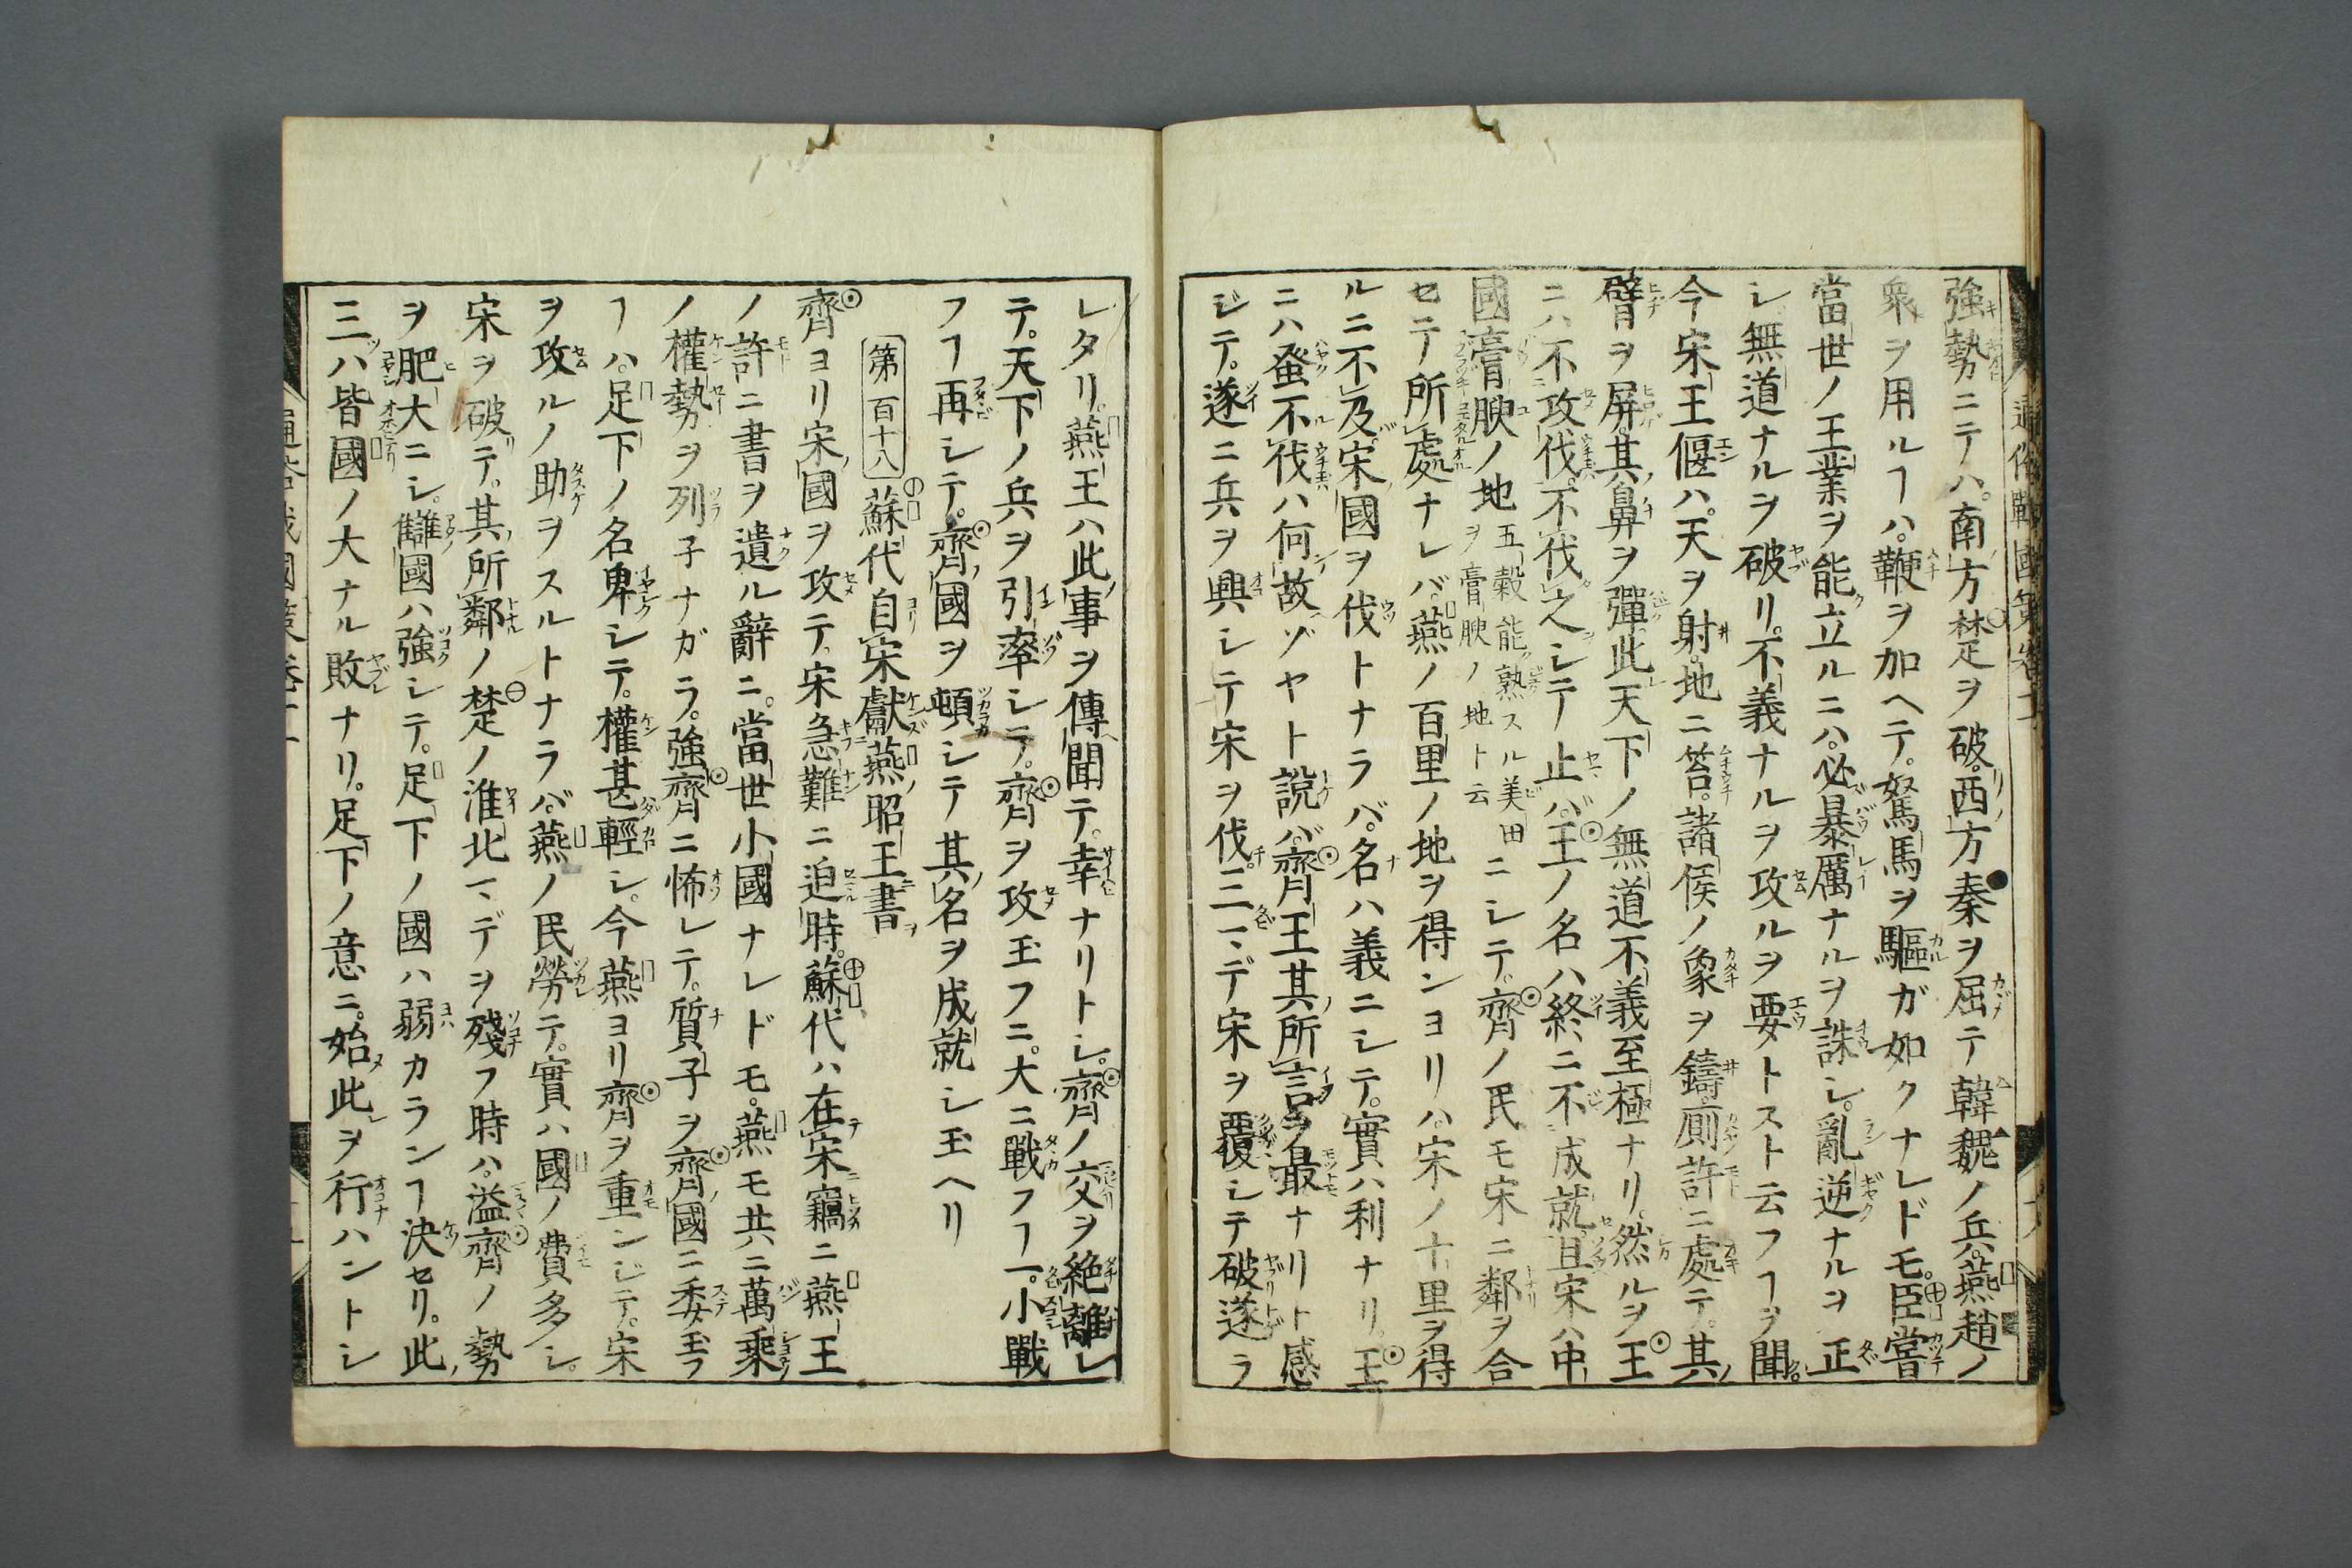 強勢ニテハ。南方楚ヲ破。西方秦ヲ屈テ韓魏ノ兵。燕趙ノ
衆ヲ用ルヿハ。鞭ヲ加ヘテ。駑馬ヲ驅ガ如クナレドモ。臣嘗
當世ノ王業ヲ能立ルニハ。必暴厲ナルヲ誅シ。亂逆ナルヲ正
シ無道ナルヲ破リ。不義ナルヲ攻ルヲ要トスト云フヿヲ聞。
今宋王偃ハ。天ヲ射。地ニ笞。諸侯ノ象ヲ鑄。厠許ニ處テ。其
臂ヲ屏。其鼻ヲ彈。此天下ノ無道不義至極ナリ。然ルヲ王
ニハ不攻伐。不伐之シテ止バ。王ノ名ハ終ニ不成就。且宋ハ中
國膏腴ノ地五穀能熟スル美田ヲ膏腴ノ地ト云ニシテ。齊ノ民モ宋ニ鄰ヲ合
セテ所處ナレバ。燕ノ百里ノ地ヲ得ンヨリハ。宋ノ十里ヲ得
ルニ不及。宋國ヲ伐トナラバ。名ハ義ニシテ。實ハ利ナリ。王
ニハ蚤不伐ハ何故ゾヤト說バ。齊王其所言ヲ最ナリト感
ジテ。遂ニ兵ヲ興シテ宋ヲ伐。三マデ宋ヲ覆シテ破遂ラ
レタリ。燕王ハ此事ヲ傳聞テ。幸ナリトシ。齊ノ交ヲ絶離レ
テ。天下ノ兵ヲ引率シテ。齊ヲ攻玉フニ。大ニ戰フヿ一。小戰
フヿ再シテ。齊國ヲ頓シテ其名ヲ成就シ玉ヘリ
第百十八 蘇代自宋獻燕昭王書
齊ヨリ宋國ヲ攻テ。宋急難ニ迫時。蘇代ハ在宋竊ニ燕王
ノ許ニ書ヲ遺ル辭ニ。當世小國ナレドモ。燕モ共ニ萬乘
ノ權勢ヲ列子ナガラ。強齊ニ怖レテ。質子ヲ齊國ニ委玉フ
ヿハ。足下ノ名卑シテ。權甚輕シ。今燕ヨリ齊ヲ重ンジテ。宋
ヲ攻ルノ助ヲスルトナラバ。燕ノ民勞テ。實ハ國ノ費多シ。
宋ヲ破テ。其所鄰ノ楚ノ淮北マデヲ殘フ時ハ。溢齊ノ勢
ヲ肥大ニシ。讎國ハ強シテ。足下ノ國ハ弱カランヿ決セリ。此
三ハ皆國ノ大ナル敗ナリ。足下ノ意ニ。始此ヲ行ハントシ